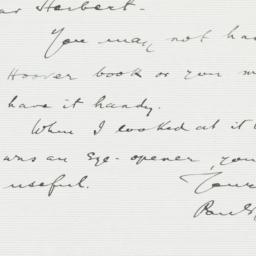 ar Herbert -
You may not hav
Hoover book or you m
have it handy.
When I looked at it
was an eye-opener, you
useful.
Your
Paul